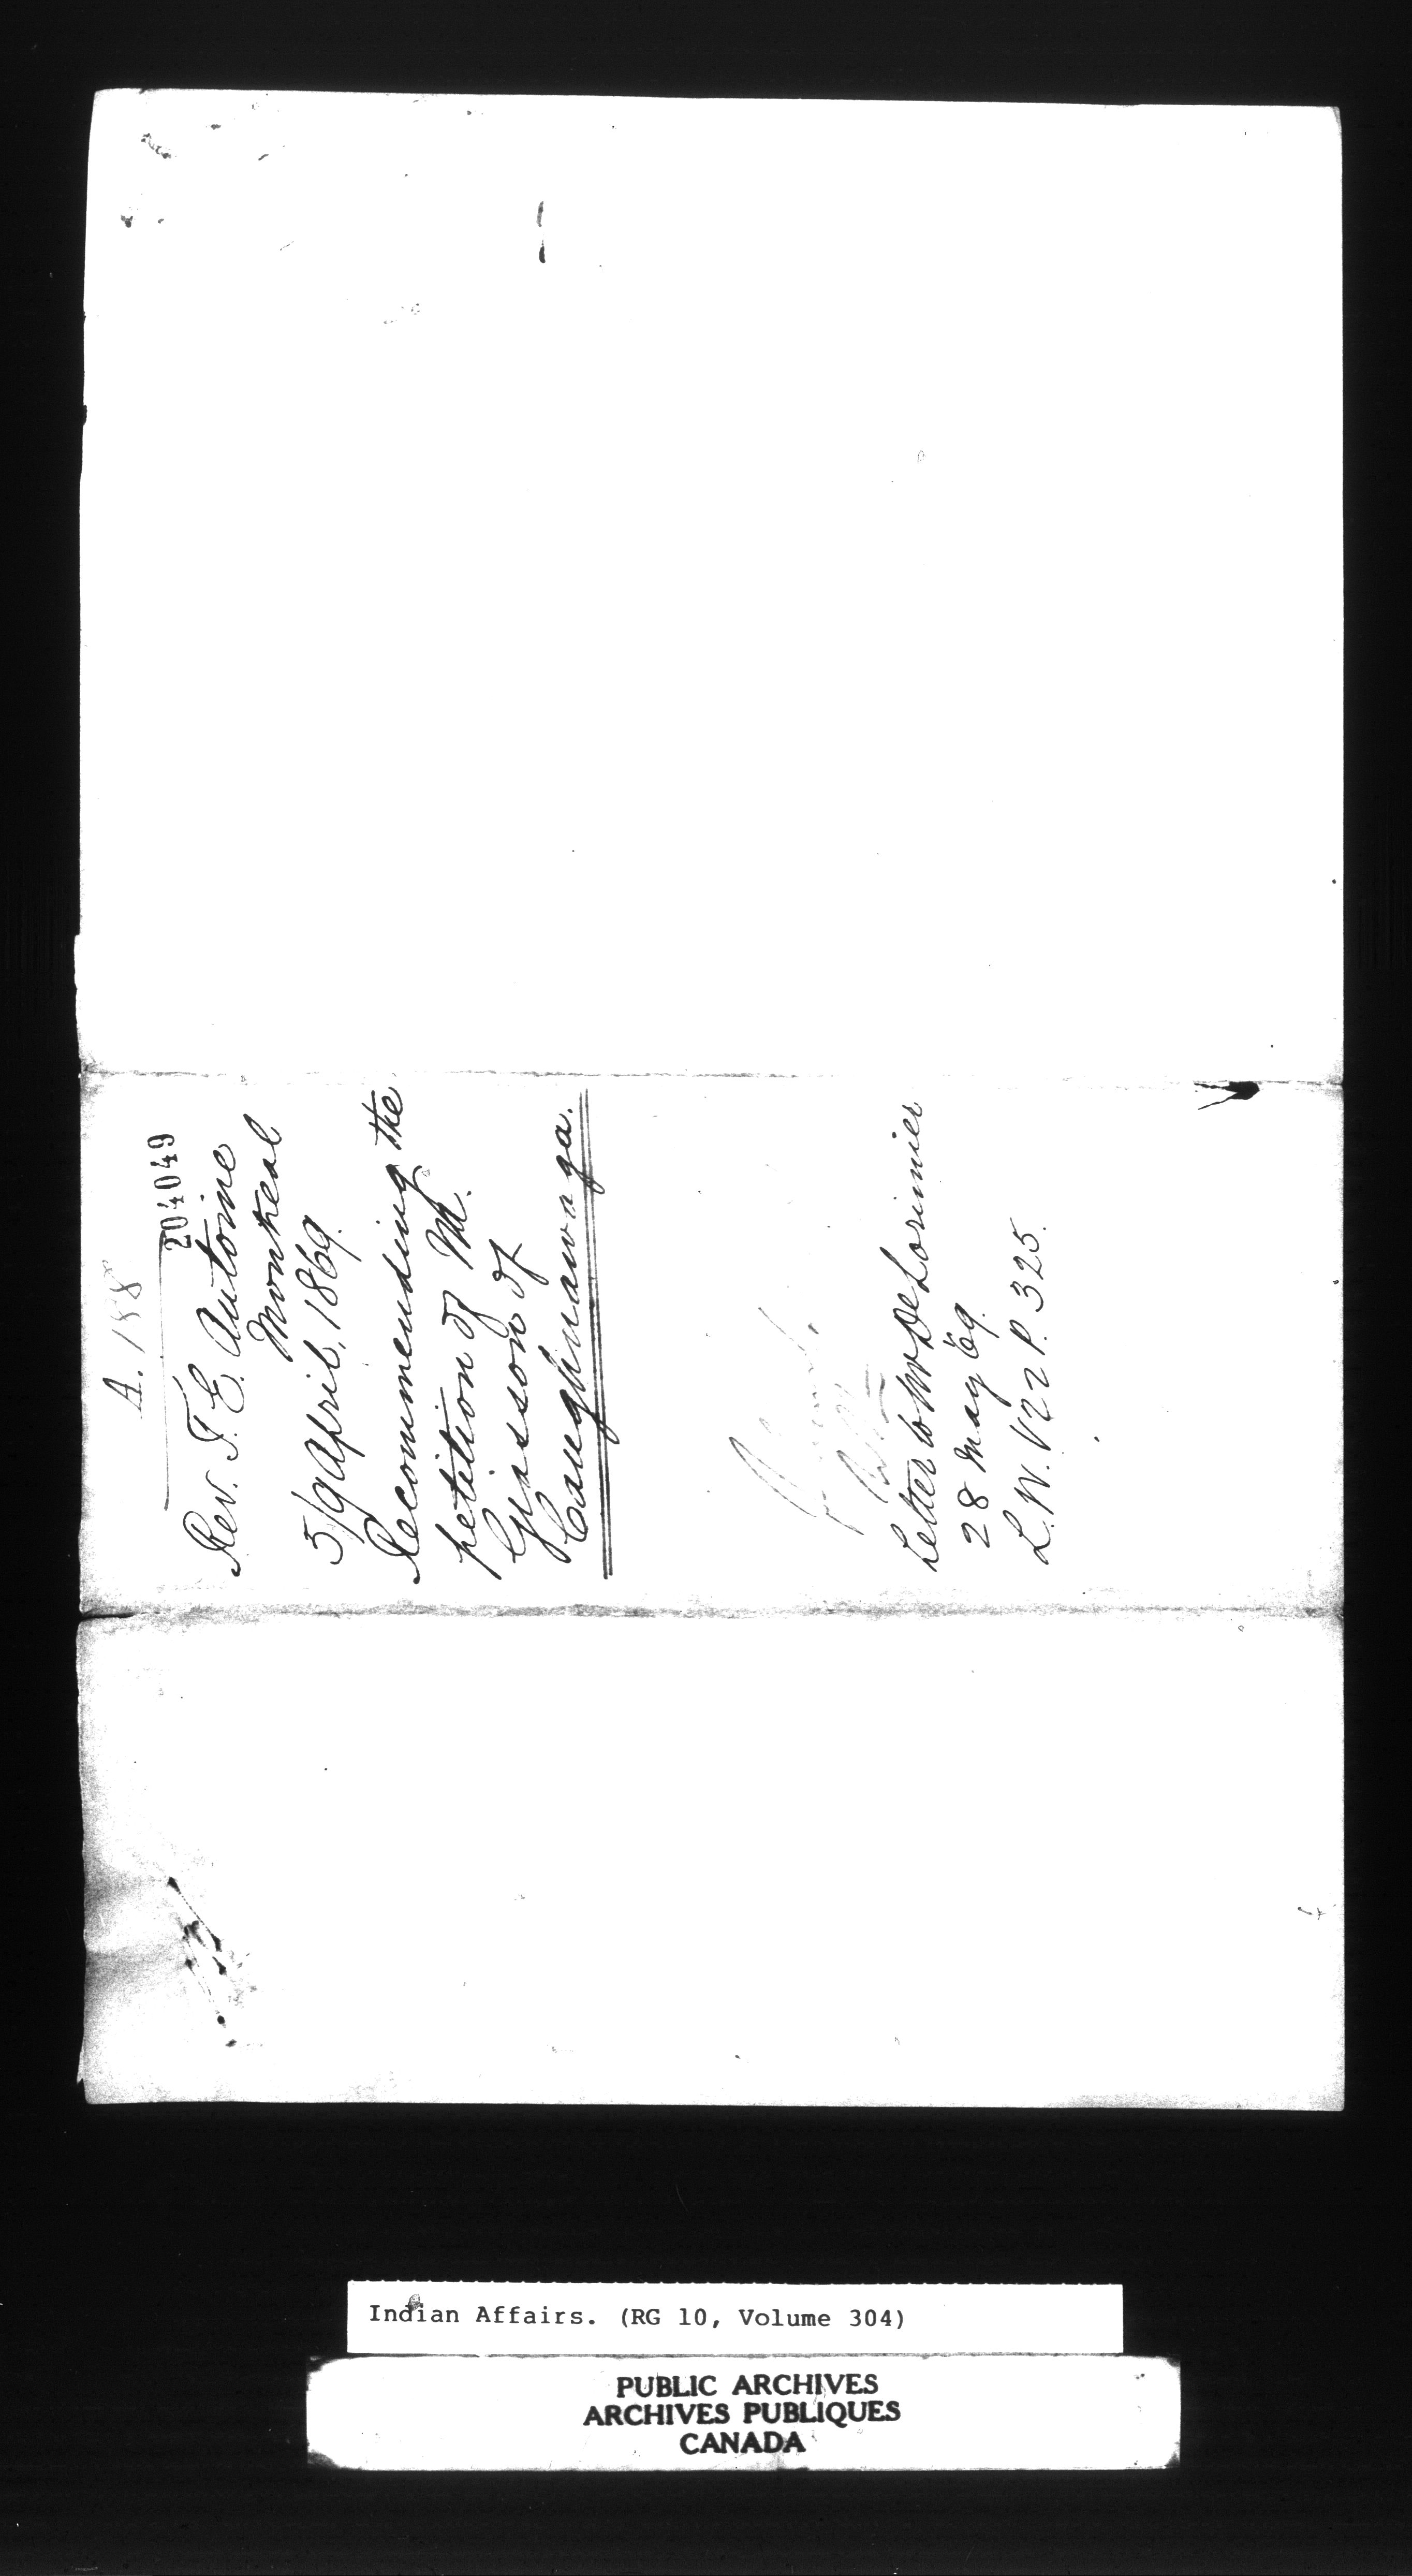 A. 188
204049
Rev. F. E. Antoine
Montreal
5/9 April, 1869.
Recommending the
petition of M.
Gisson of
Caughnawaga.
Letter to Mr DeLorimier
28 May 69.
L.W. V22 P. 325.
Indian Affairs. (RG 10, Volume 304)
PUBLIC ARCHIVES
ARCHIVES PUBLIQUES
CANADA